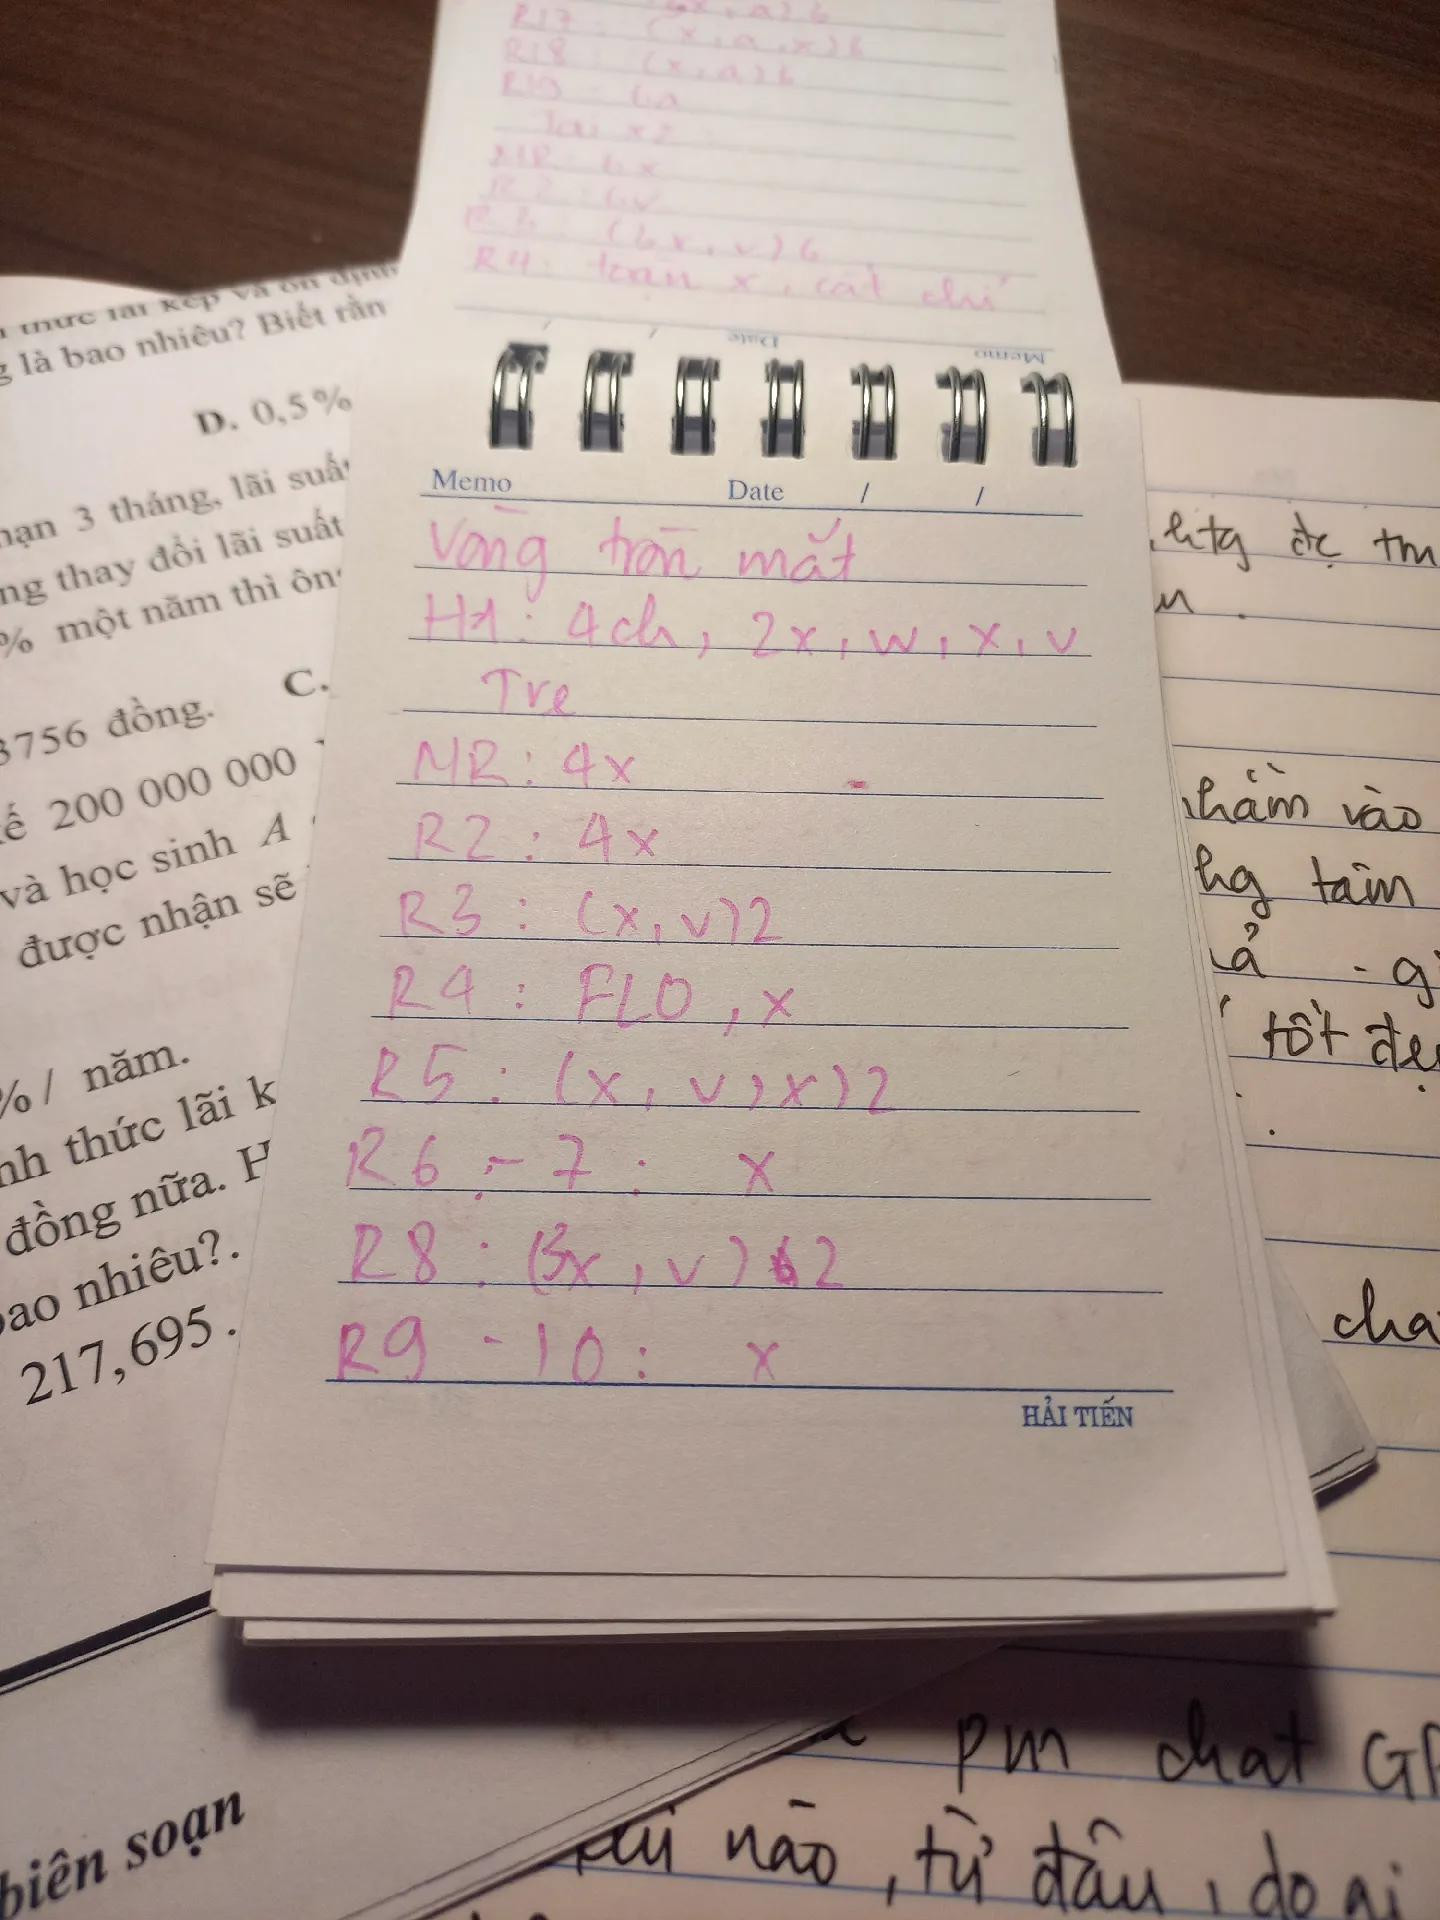 R17 : (x, a, x) 6
R18 : (x, a) 6
R19 : 6a
Tai x2
MR : 6x
R2 : 6v
R3 : (6x, v) 6
R4 : toàn x, cắt chỉ
Memo Date / /
Memo Date / /
Vòng tròn mắt
H1 : 4ch, 2x, w, x, v
Tre
MR : 4x
R2 : 4x
R3 : (x, v) 2
R4 : FLO, x
R5 : (x, v, x) 2
R6 - 7 : x
R8 : (3x, v) 2
R9 - 10 : x
HẢI TIẾN
thức lãi kép và ổn định
là bao nhiêu? Biết rằn
D. 0,5%
hạn 3 tháng, lãi suất
ng thay đổi lãi suất
% một năm thì ôn
C.
3756 đồng.
ế 200 000 000
và học sinh A
được nhận sẽ
%/ năm.
nh thức lãi k
đồng nữa. H
bao nhiêu?.
217,695.
biên soạn
đc
nhầm vào
tâm
tốt đẹ
cha
pm chat GP
nào, từ đâu, do ai